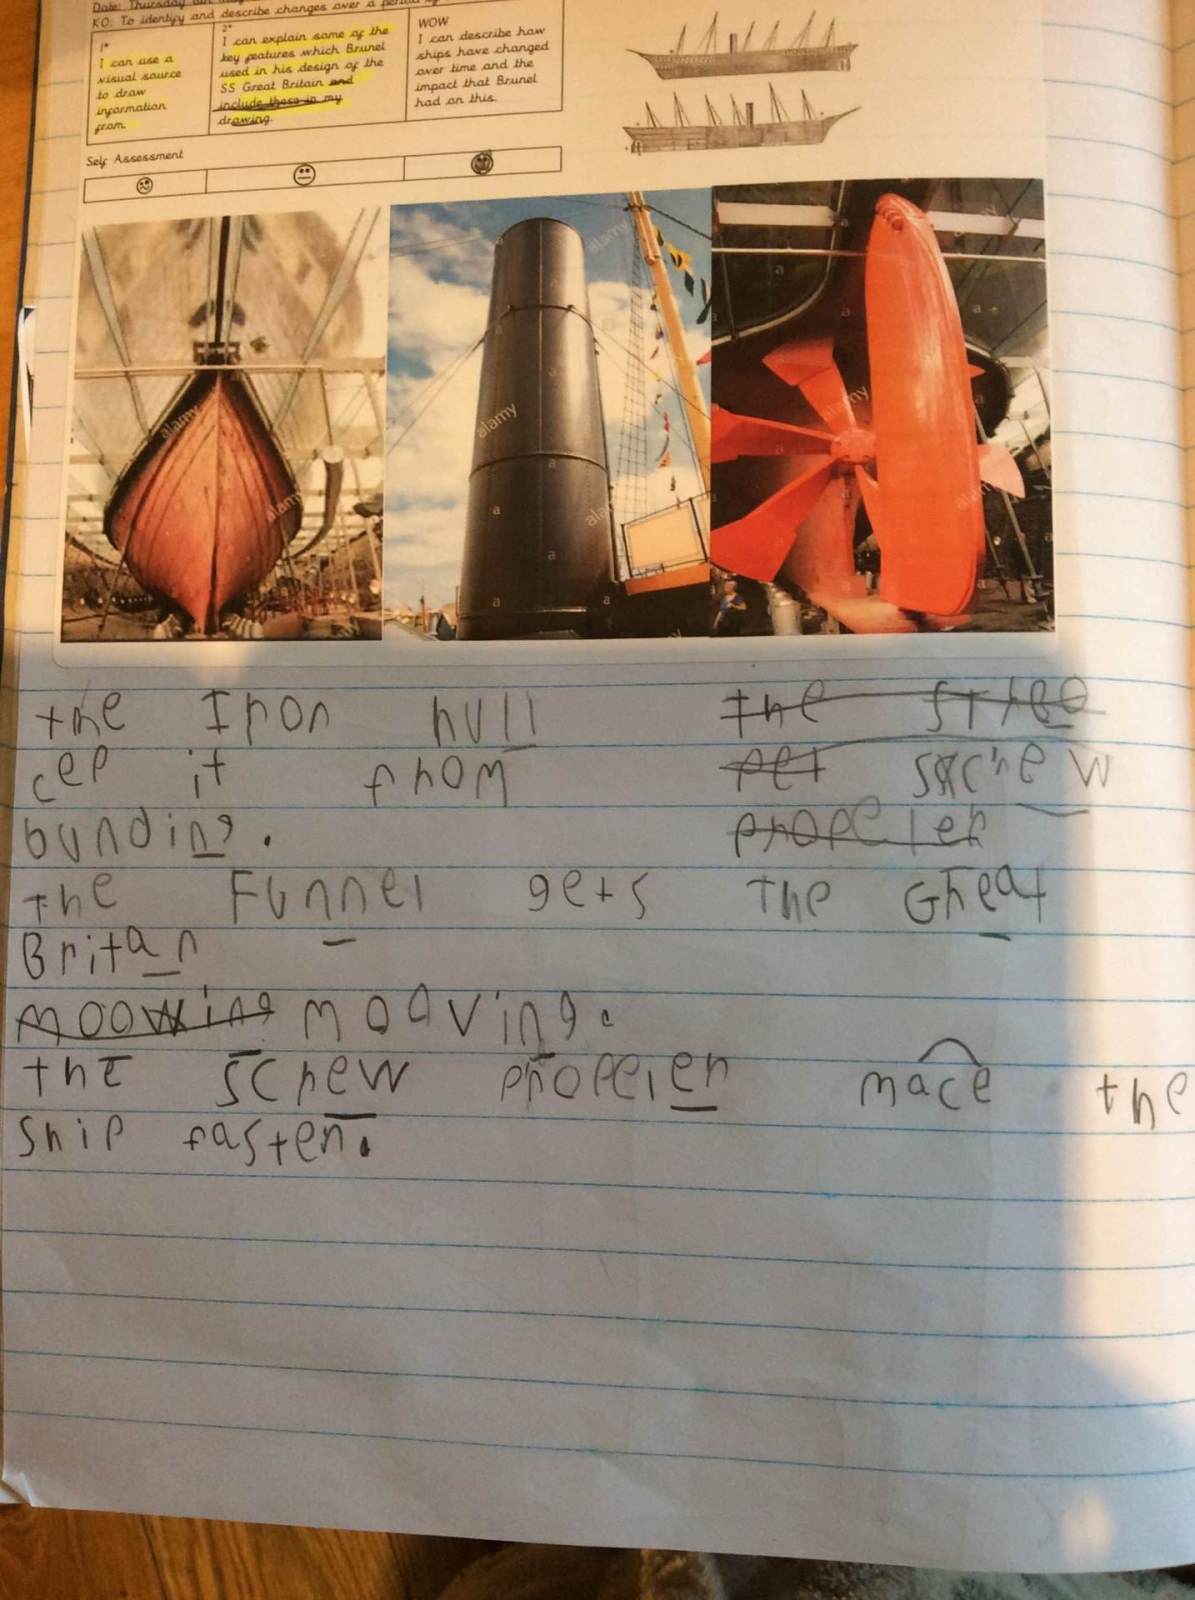 Date: Thursday
KO: To identify and describe changes over a period
1*
I can use a
visual source
to draw
information
from.
2*
I can explain some of the
key features which Brunel
used in his design of the
SS Great Britain and
include these in my
drawing.
WOW
I can describe how
ships have changed
over time and the
impact that Brunel
had on this.
Self Assessment
alamy
alamy
alamy
alamy
alamy
alamy
alamy
alamy
the Iron hull the
cep it from pet screw
bunding. propeler
the Funnel gets the Great
Britan
moowing mooving.
the screw propeler mace the
ship faster.